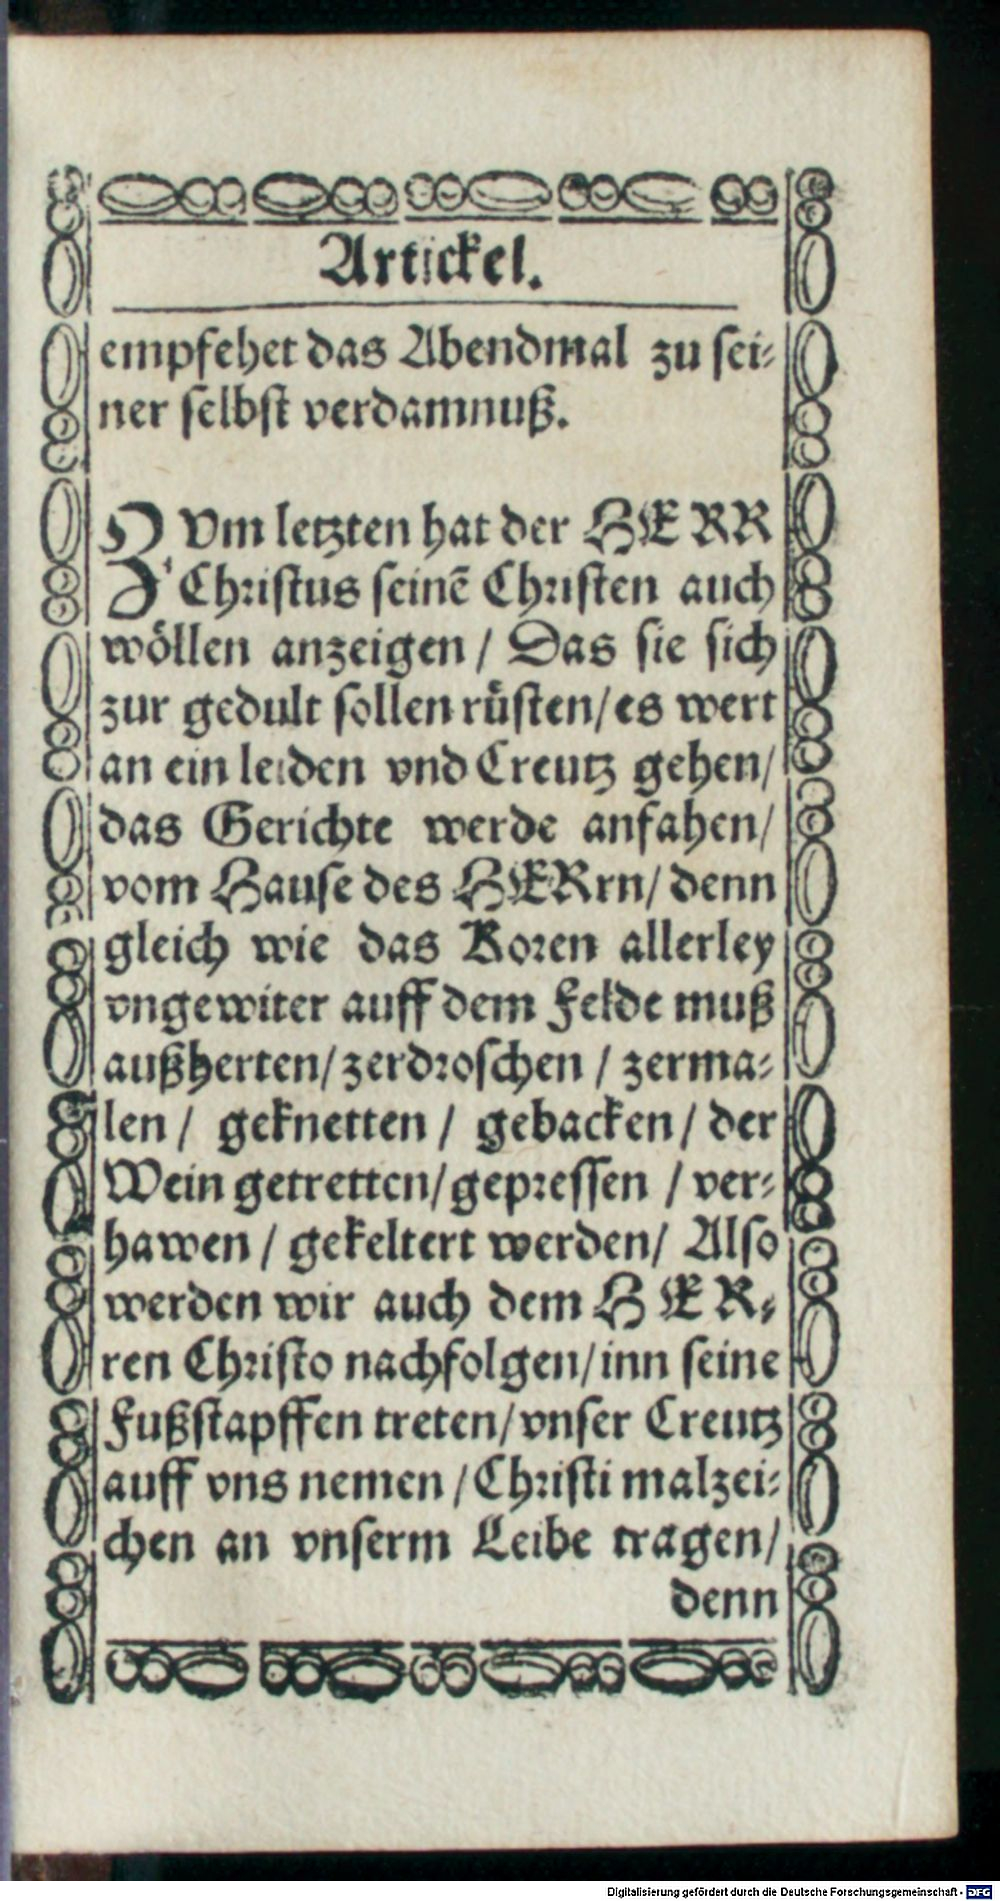 Artickel.
empfehet das Abendmal zu sei⸗
ner selbst verdamnuß.
ZVm letzten hat der HERR
Christus seinẽ Christen auch
wöllen anzeigen / Das sie sich
zur gedult sollen rüsten / es wert
an ein leiden vnd Creutz gehen /
das Gerichte werde anfahen /
vom Hause des HERrn / denn
gleich wie das Koren allerley
vngewiter auff dem Felde muß
außherten / zerdroschen / zerma⸗
len / geknetten / gebacken / der
Wein getretten / gepressen / ver⸗
hawen / gekeltert werden / Also
werden wir auch dem HER⸗
ren Christo nachfolgen / inn seine
Fußstapffen treten / vnser Creutz
auff vns nemen / Christi malzei⸗
chen an vnserm Leibe tragen /
denn
Digitalisierung gefördert durch die Deutsche Forschungsgemeinschaft - DFG